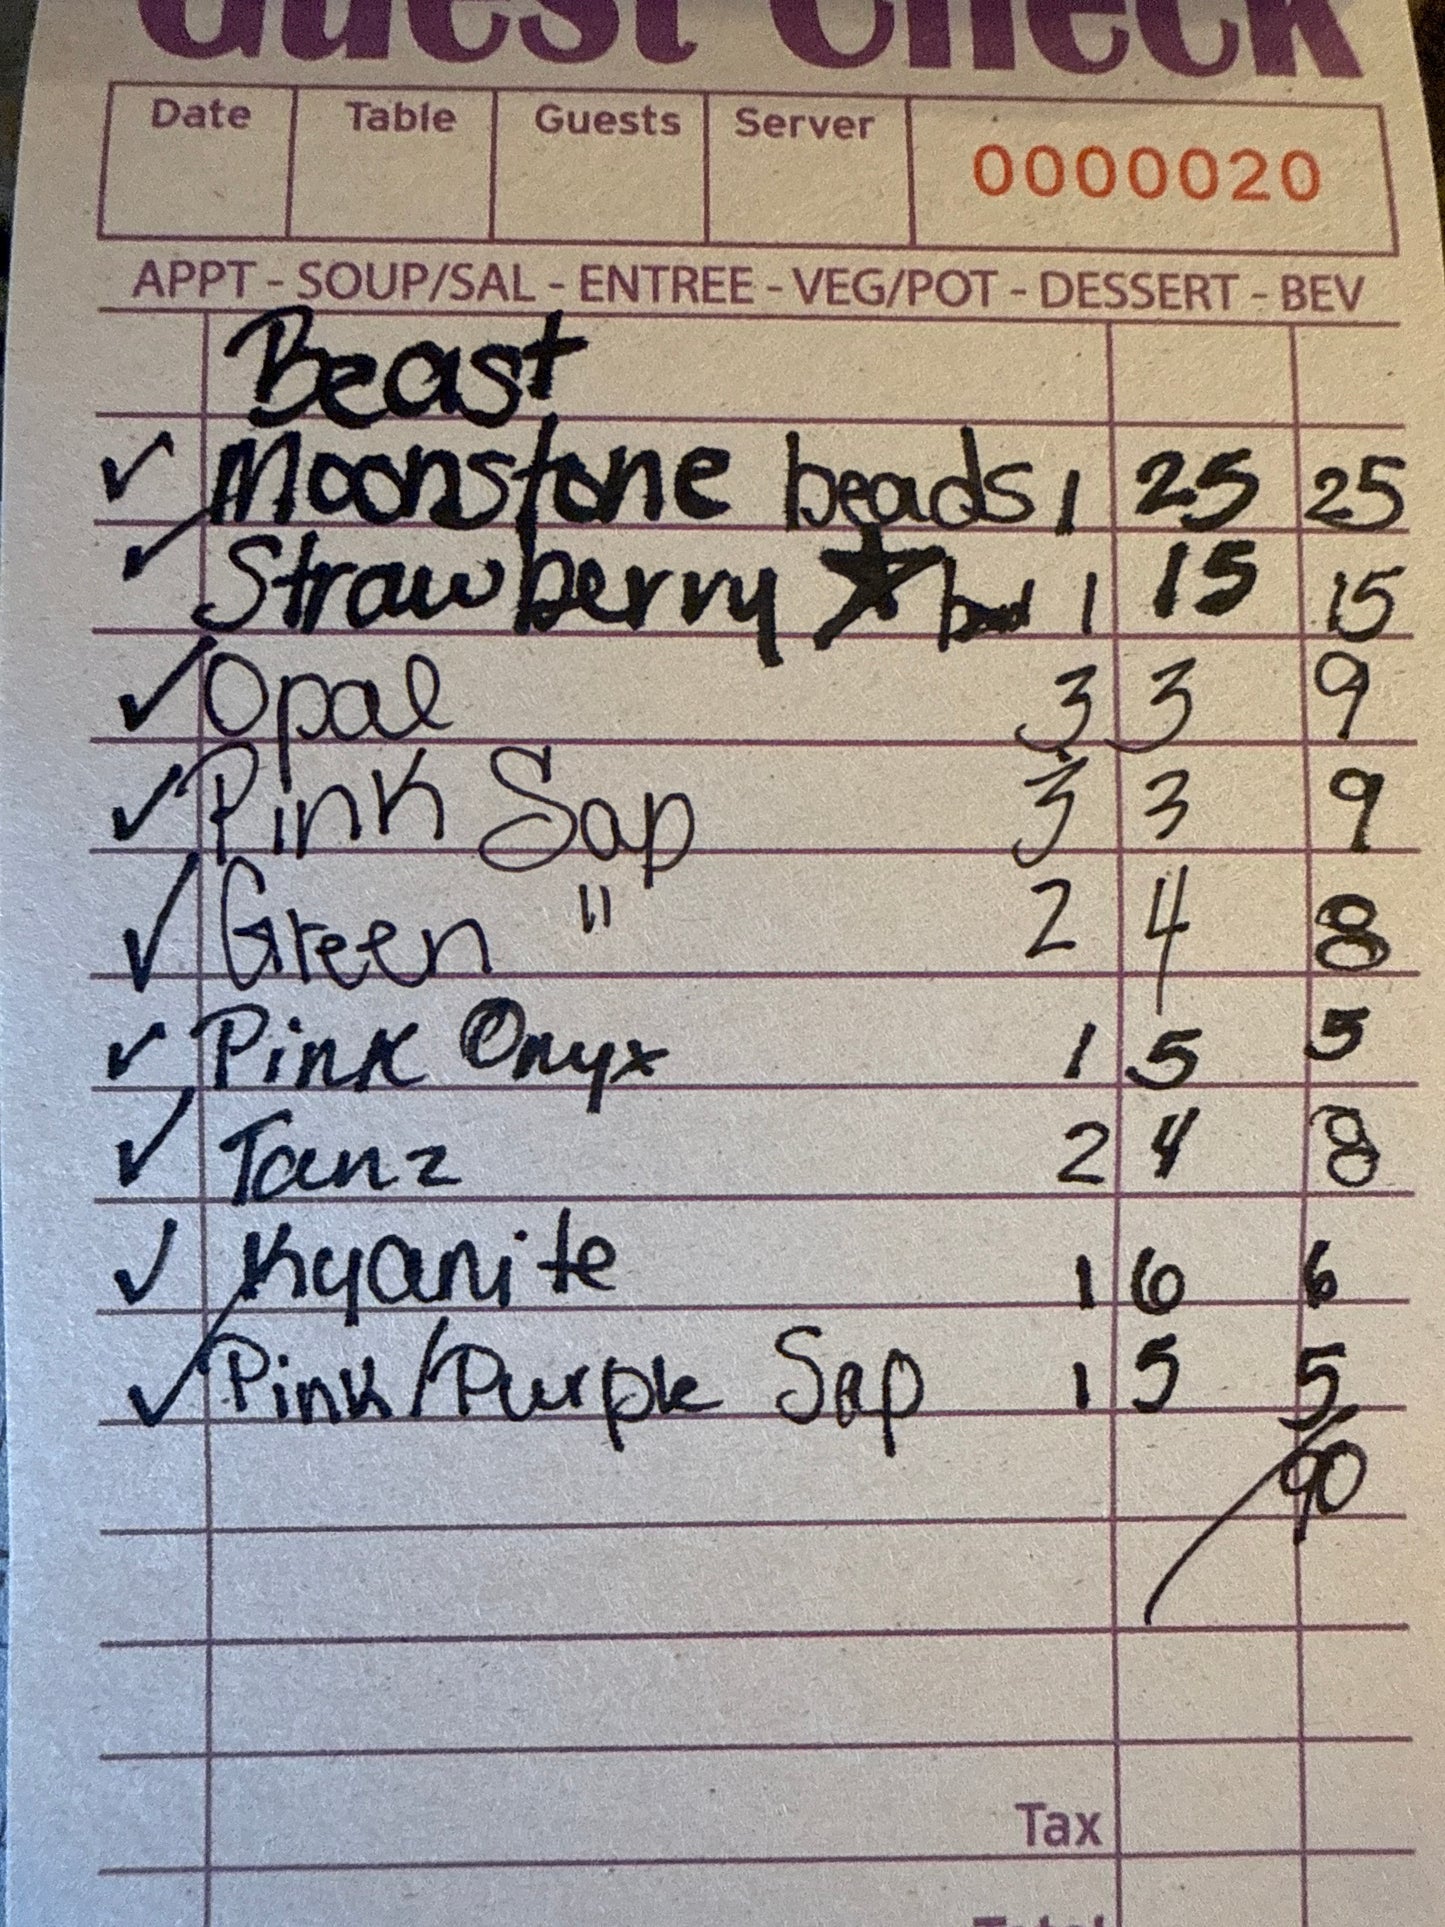 Guest Check
Date Table Guests Server 0000020
APPT - SOUP/SAL - ENTREE - VEG/POT - DESSERT - BEV
Beast
✓ Moonstone beads 1 25 25
✓ Strawberry ★ 1 15 15
✓ Opal 3 3 9
✓ Pink Sap 3 3 9
✓ Green " 2 4 8
✓ Pink Onyx 1 5 5
✓ Tanz 2 4 8
✓ Kyanite 1 6 6
✓ Pink/Purple Sap 1 5 5
90
Tax
Total